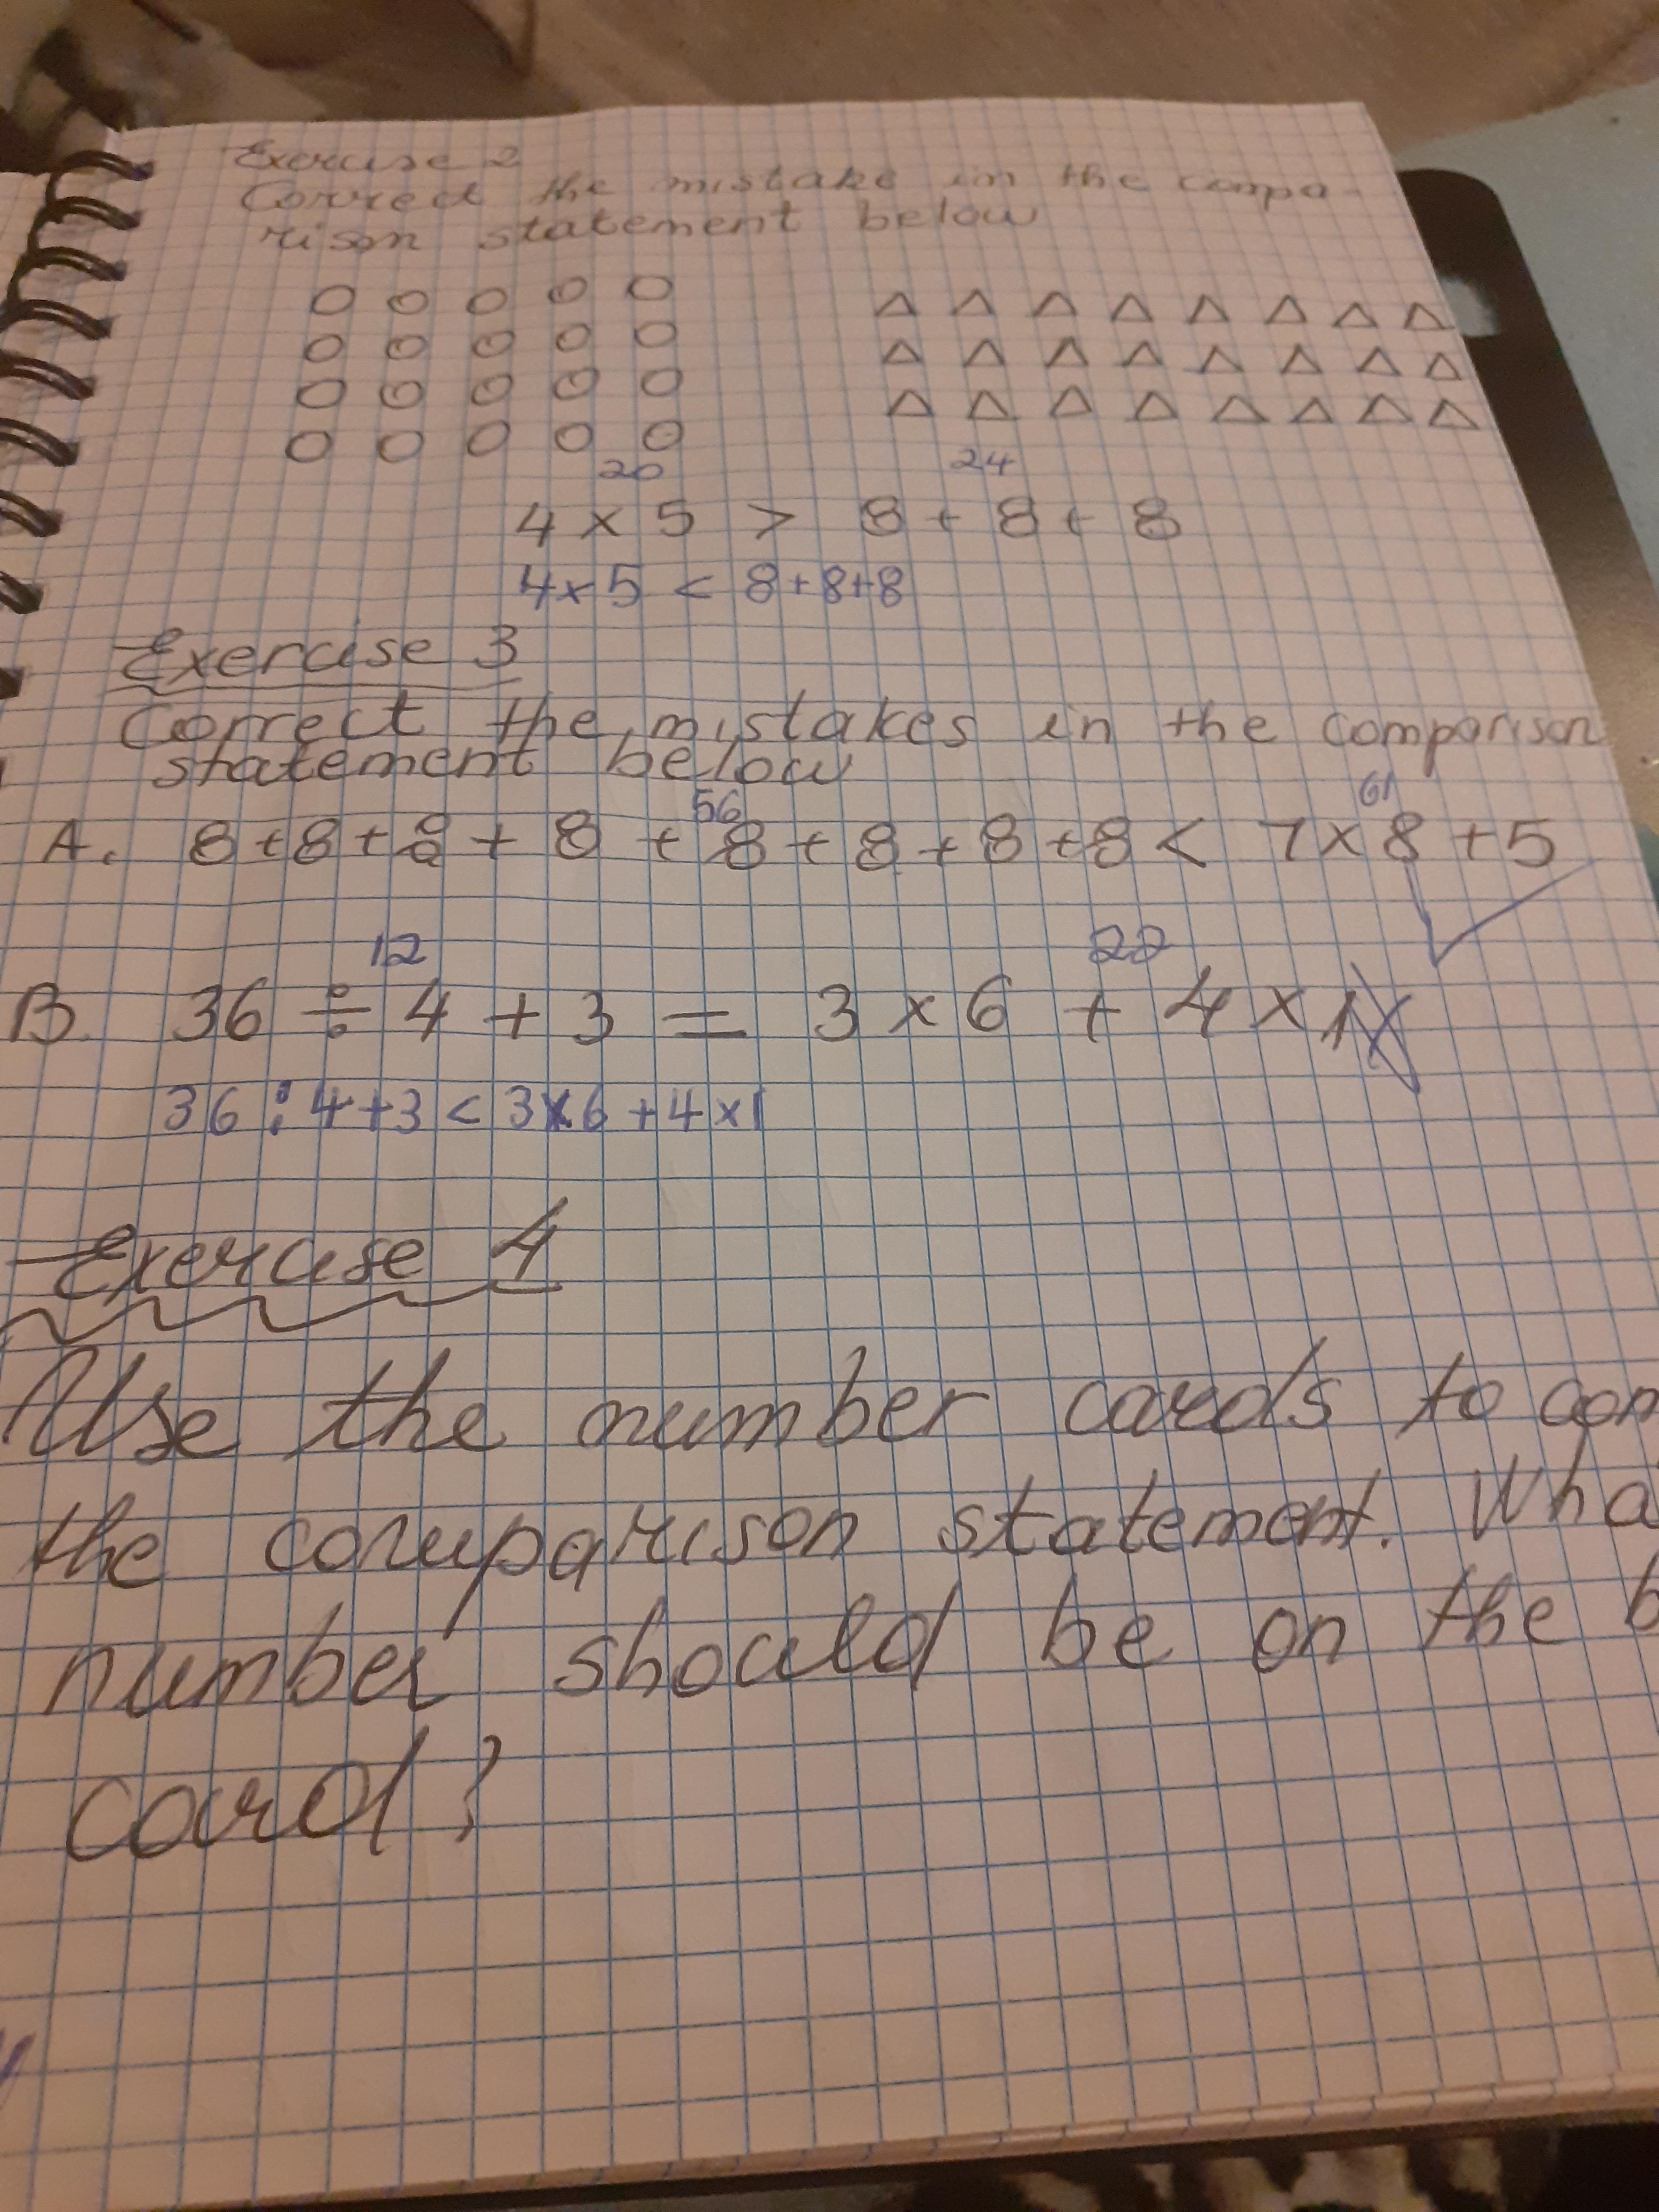 Exercise 2
Correct the mistake in the compa-
rison statement below
20 24
4 x 5 > 8 + 8 + 8
4x5 < 8+8+8
Exercise 3
Correct the mistakes in the comparison
statement below
56 61
A. 8+8+8+8+8+8+8+8 < 7x8+5
12 22
B 36 ÷ 4 + 3 = 3 x 6 + 4 x 1
36 : 4+3 < 3x6 + 4x1
Exercise 4
Use the number cards to com
the comparison statement. Wha
number should be on the b
card?